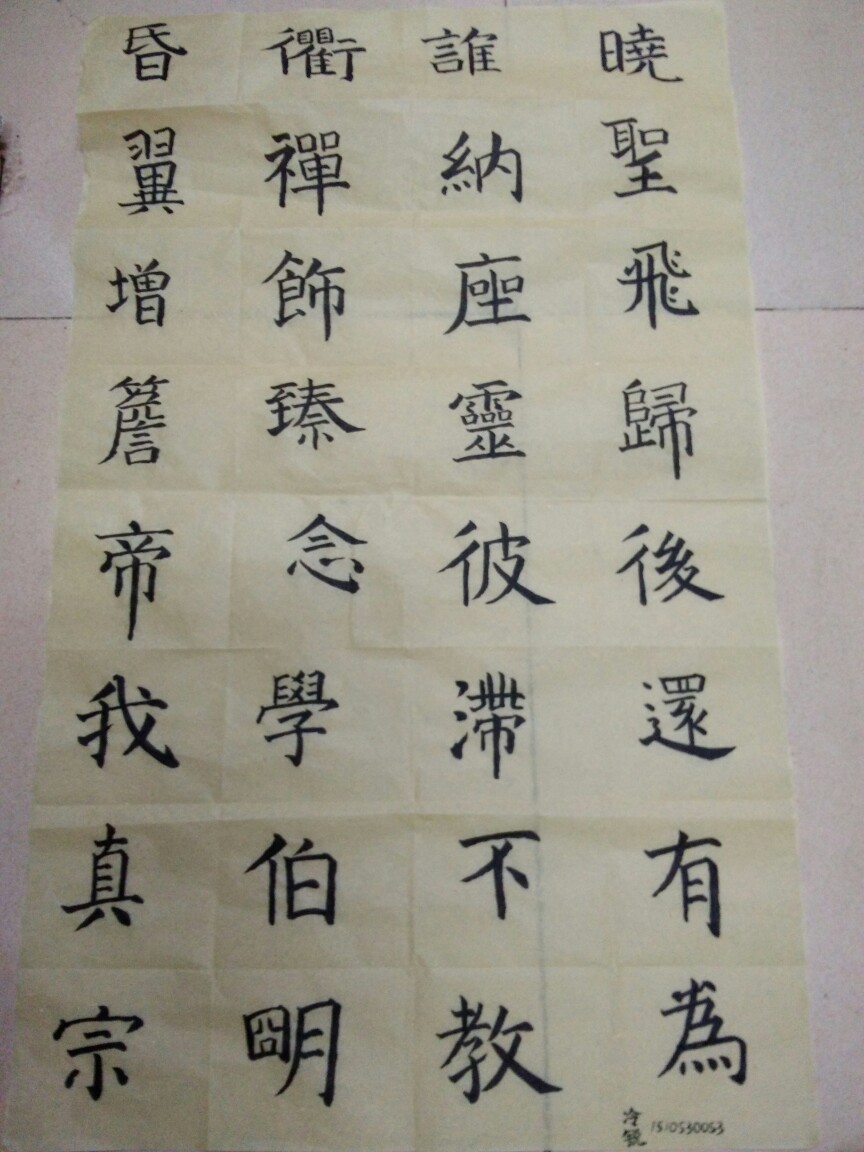 曉聖飛歸後還有為
誰納座靈彼滯不教
衢禪飾臻念學伯朙
昏翼增簷帝我真宗
冷 1510530053